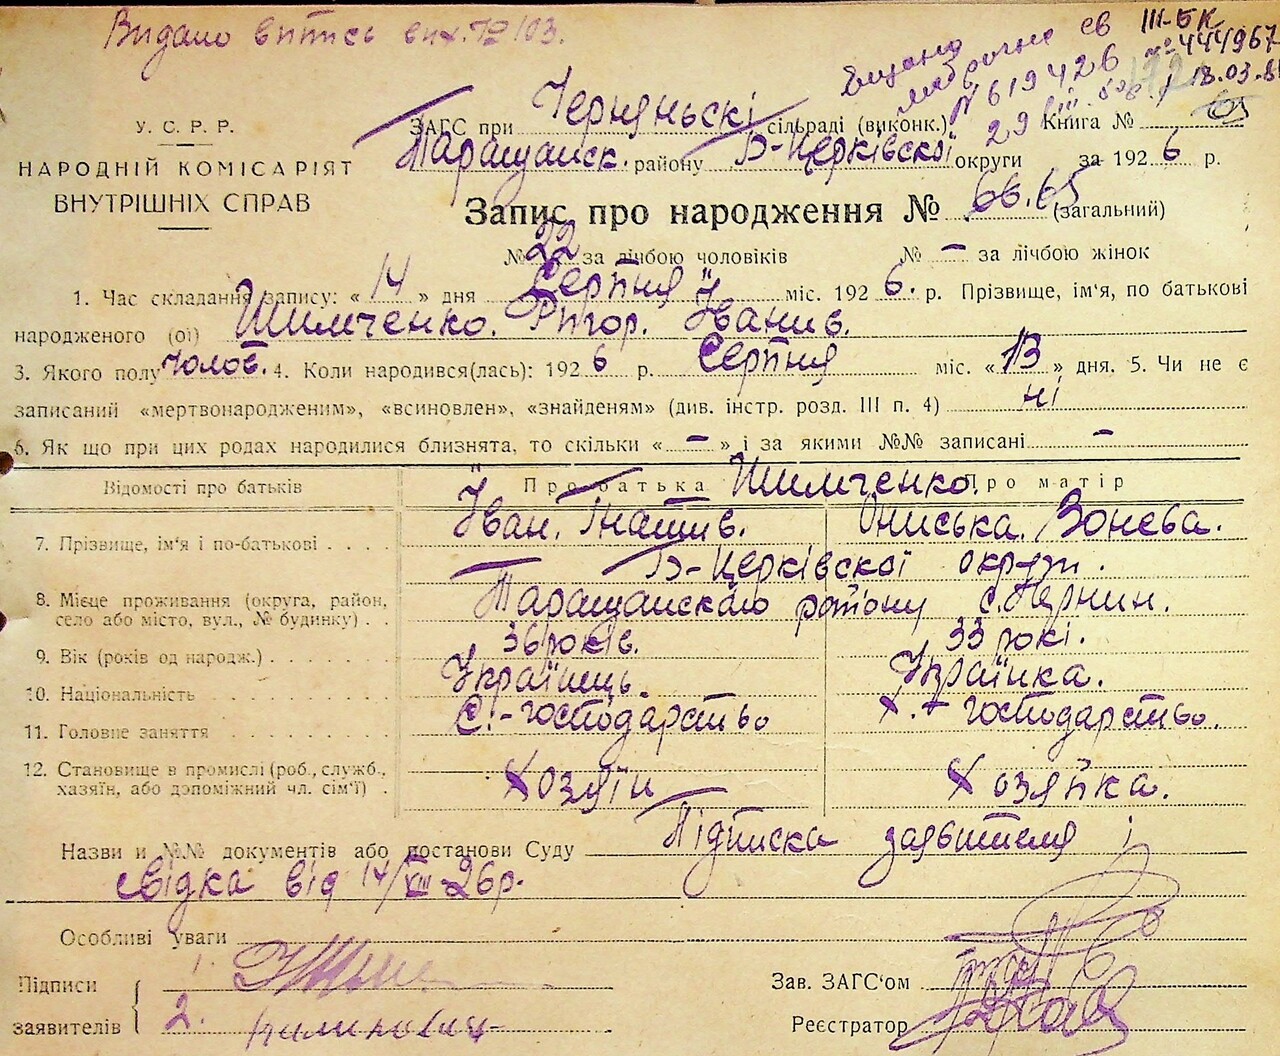 Видано витись вих. 70/03.
Видано повторне св III-БК
№ 619426 № 444967
29 18.03.8
У. С. Р. Р.
НАРОДНІЙ КОМІСАРІЯТ
ВНУТРІШНІХ СПРАВ
ЗАГС при Черняньскі сільраді (виконк.) Книга №
Таращанск. району Б-Церківскої округи за 1926 р.
Запис про народження № 66. 65 (загальний)
№ 22 за лічбою чоловіків № – за лічбою жінок
1. Час складання запису: « 14 » дня Серпня міс. 1926. р. Прізвище, ім'я, по батькові
народженого (ої) Шимченко. Григор. Іванив.
3. Якого полу чолов. 4. Коли народився(лась): 1926 р. Серпня міс. « 13 » дня. 5. Чи не є
записаний «мертвонародженим», «всиновлен», «знайденям» (див. інстр. розд. III п. 4) ні
6. Як що при цих родах народилися близнята, то скільки « – » і за якими №№ записані –
Відомості про батьків Про батька Шимченко. Про матір
7. Прізвище, ім'я і по-батькові Іван. Гнатив. Ониська.
Б-Церківскої округи.
8. Місце проживання (округа, район, село або місто, вул., № будинку) Таращанского району с.
9. Вік (років од народж.) 36 років. 33 рокі.
10. Національність Українець. Українка.
11. Головне заняття С.-господарство х.-господарство.
12. Становище в промислі (роб., служб., хазяїн, або допоміжний чл. сім'ї) Хозяїн Хозяйка.
Назви и №№ документів або постанови Суду Підписка заявителя і
свідка від 14/VIII-26р.
Особливі уваги
Підписи заявителів { 1.
2.
Зав. ЗАГС'ом
Реєстратор